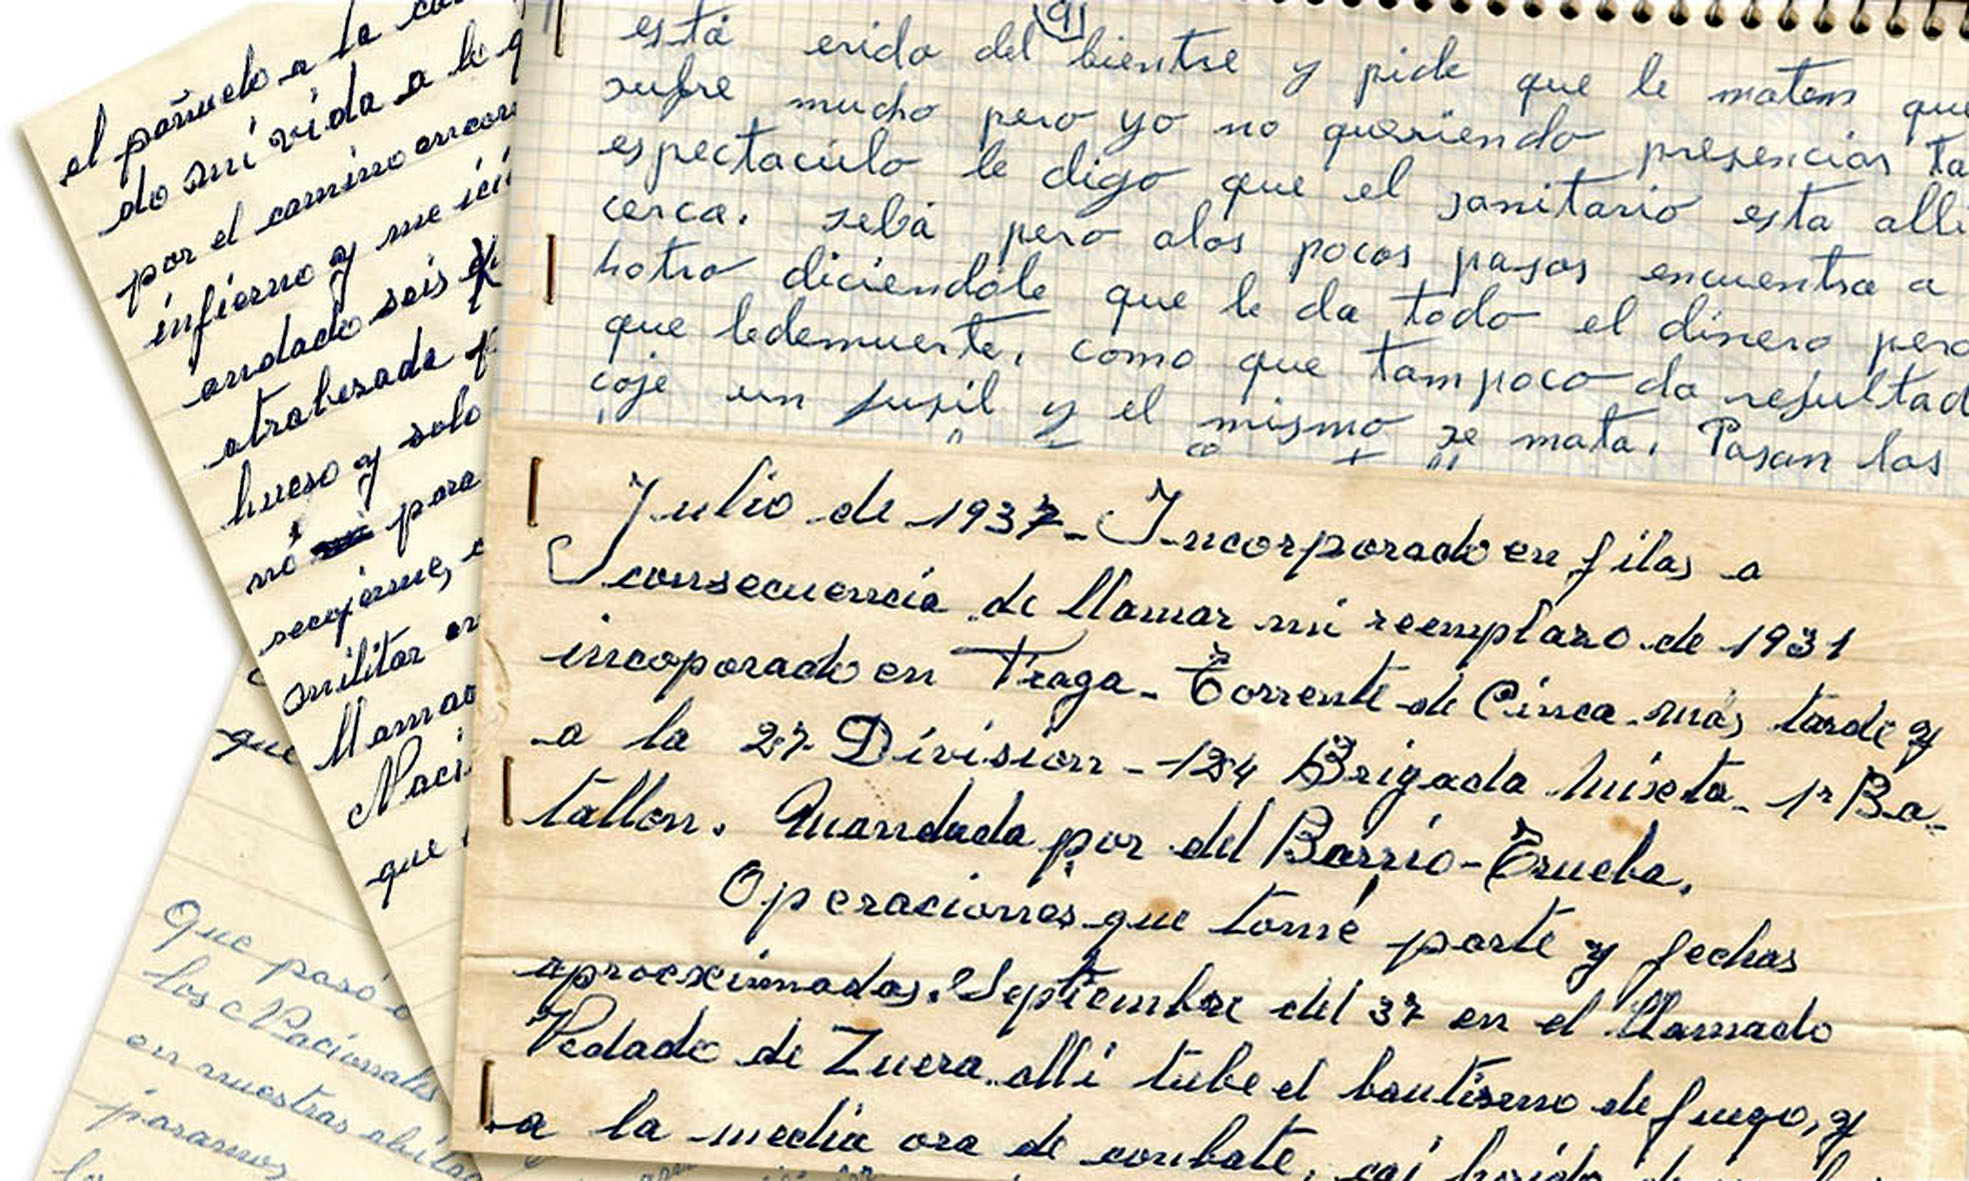 el pañuelo a la
do mi vida a le
por el camino
infierno y me
andado seis
atrabesada
hueso y solo
no para
recojerme,
militar
llamar
Naci
que
que
Que pasó
los Nacionales
en nuestras
paramos
9
está erido del bientre y pide que le maten que
sufre mucho pero yo no queriendo presenciar ta
espectaculo le digo que el sanitario esta alli
cerca. sebá pero alos pocos pasos encuentra a
hotro diciendole que le da todo el dinero pero
que ledemuerte, como que tampoco da resultad
coje un fusil y el mismo se mata. Pasan los
Julio de 1937 - Incorporado en filas a
consecuencia de llamar mi reemplazo de 1931
incoporado en Fraga - Torrente de Cinca mas tarde y
a la 27 Division - 124 Brigada Mixeta - 1r Ba-
tallon. Mandada por del Barrio - Trueba.
Operaciones que tomé parte y fechas
aproeximadas. Septiembre del 37 en el llamado
Vedado de Zuera alli tube el bautismo de fuego, y
a la media ora de conbate, caí herido de